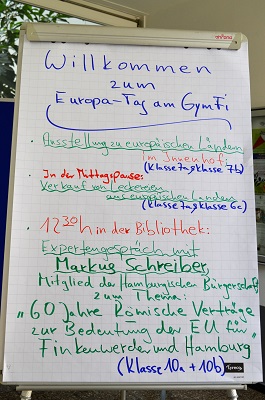 Willkommen
zum
Europa-Tag am GymFi
• Ausstellung zu europäischen Ländern
im Innenhof:
(Klasse 7a & Klasse 7b)
• In der Mittagspause:
Verkauf von Leckereien
aus europäischen Ländern
(Klasse 7a & Klasse 6c)
• 12 30 h in der Bibliothek:
Expertengespräch mit
Markus Schreiber,
Mitglied der Hamburgischen Bürgerschaft
zum Thema:
„60 Jahre Römische Verträge
zur Bedeutung der EU für
Finkenwerder und Hamburg"
(Klasse 10a + 10b)